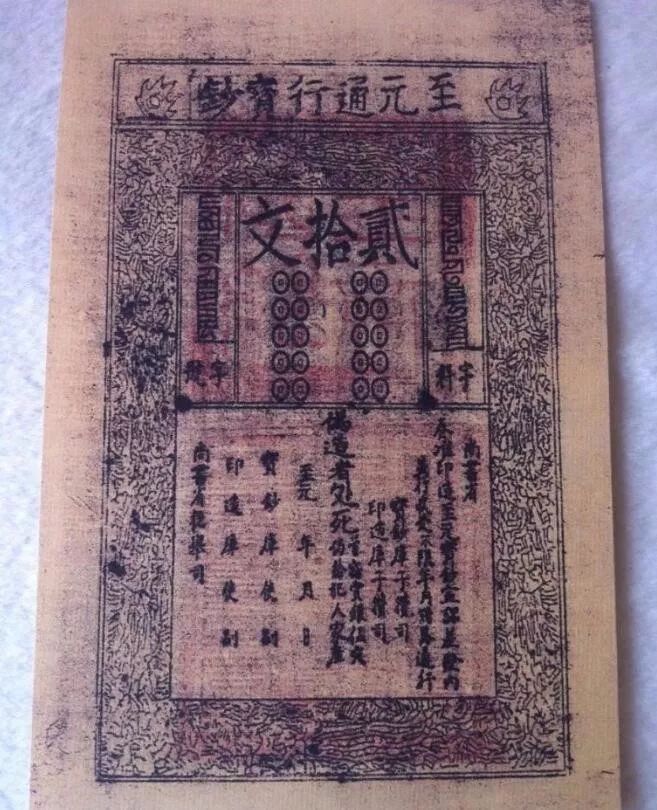 至元通行寶鈔
貳拾文
字料
字號
尚書省
奏准印造至元寶鈔宣課差發內
並行收受不限年月諸路通行
寶鈔庫子攢司
印造庫子攢司
偽造者處死
仍給犯人家產
至元 年 月 日
寶鈔庫使副
印造庫使副
尚書省提舉司